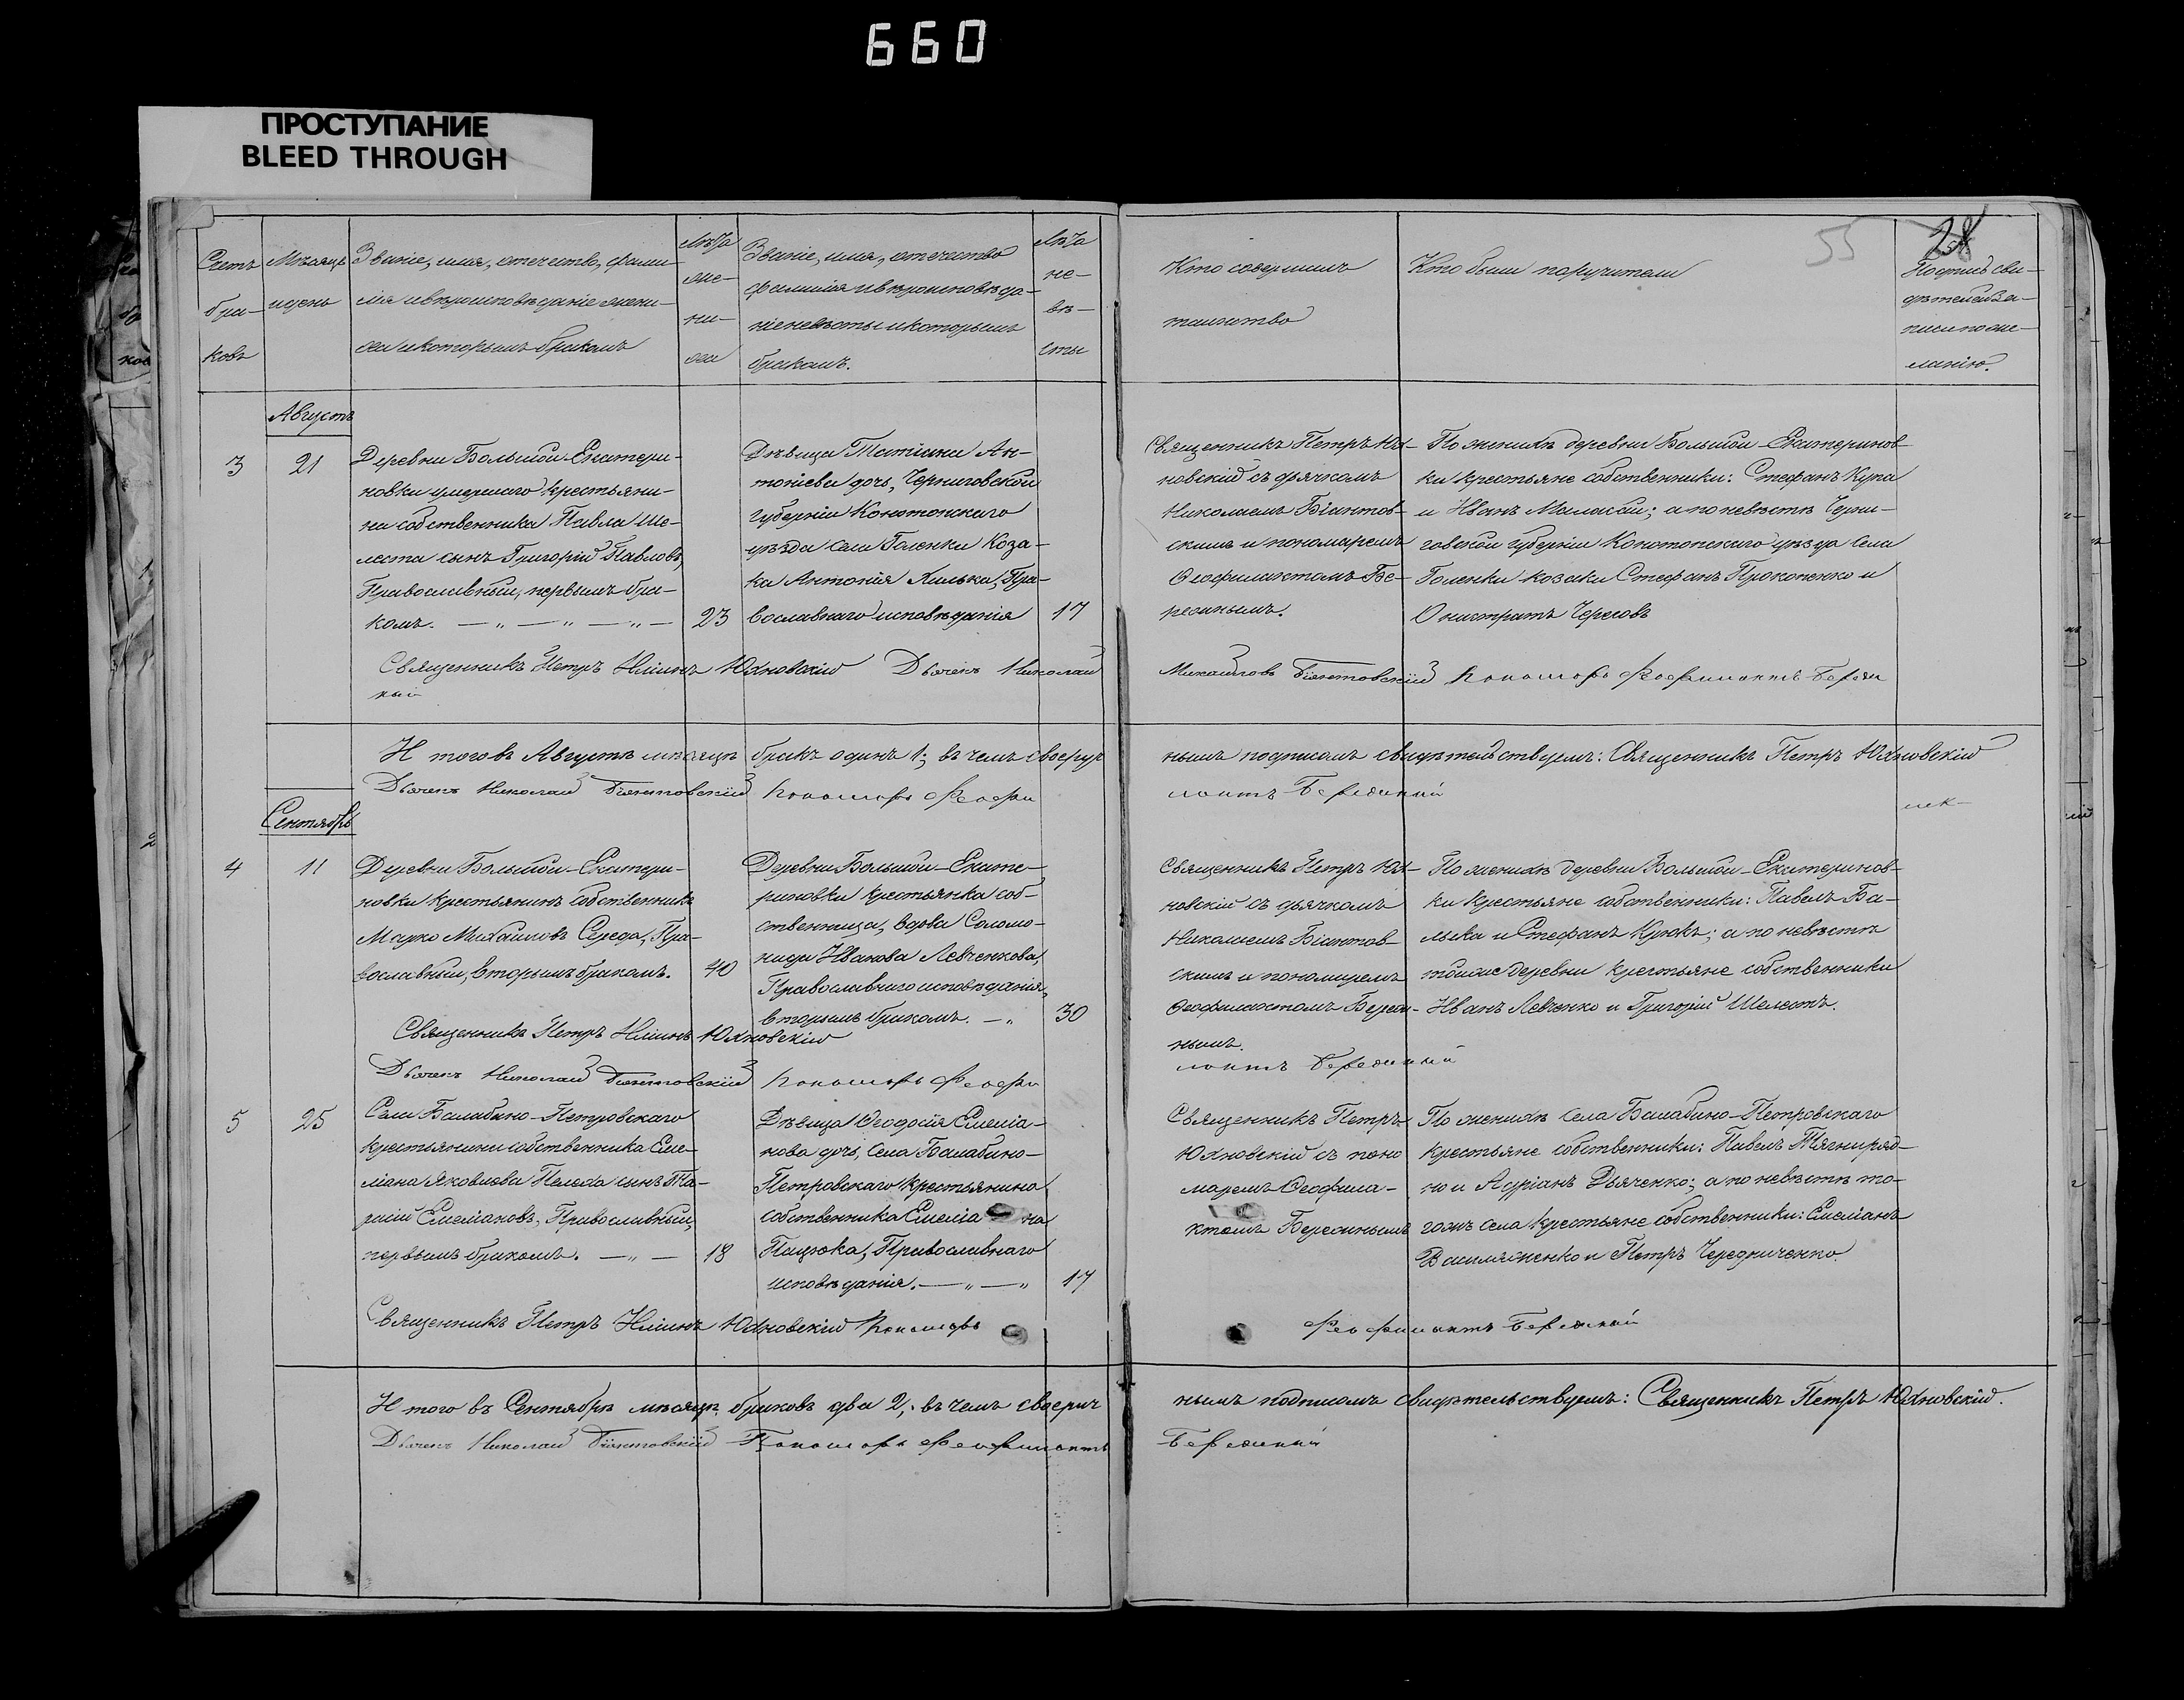 660
ПРОСТУПАНИЕ
BLEED THROUGH
55
28
Счетъ бра- ковъ
Мѣсяцъ и день
Званіе, имя, отечество, фами-
лія и вѣроисповѣданіе жени-
ха и которымъ бракомъ
Лѣта же- ни- ха
Званіе, имя, отечество
фамилія и вѣроисповѣда-
ніе невѣсты и которымъ
бракомъ.
Лѣта не- вѣ- сты
Кто совершилъ
таинство
Кто были поручители
Подпись сви-
дѣтелей за-
писи по же-
ланію.
Августъ
3
21
Деревни Большой-Екатери-
новки умершаго крестьяни-
на собственника Павла Ше-
леста сынъ Григорій Павловъ,
Православный, первымъ бра-
комъ.
23
Дѣвица Татіана Ан-
тоніева дочь, Черниговской
губерніи Конотопскаго
уѣзда села Голенки Коза-
ка Антонія Хилька, Пра-
вославнаго исповѣданія
17
Священникъ Петръ Юх-
новскій съ дячкомъ
Николаемъ Біантов-
скимъ и пономаремъ
Ѳеофилактомъ Бе-
резинымъ.
По женихѣ деревни Большой-Екатеринов-
ки крестьяне собственники: Стефанъ Купа
и Иванъ Малахой; а по невѣстѣ Черни-
говской губерніи Конотопскаго уѣзда Села
Голенки козаки Стефанъ Прокопенко и
Онистратъ Чересовъ
Священникъ Петръ Иліинъ Юхновскій Дьячекъ Николай Михайловъ Біантовскій Пономарь Феофилактъ Берези
ный
Итого въ Августѣ мѣсяцѣ бракъ одинъ 1; въ чемъ своеруч нымъ подписомъ свидѣтельствуемъ: Священникъ Петръ Юхновскій
Дьячекъ Николай Біантовскій Пономарь Феофи лактъ Березиный
Сентябрь
4
11
Деревни Большой-Екатери-
новки крестьянинъ собственникъ
Марко Михаиловъ Середа, Пра-
вославный, вторымъ бракомъ.
40
Деревни Большой-Екате-
риновки крестьянка соб-
ственница, вдова Соломо-
нида Иванова Левченкова,
Православнаго исповѣданія,
вторымъ бракомъ.
30
Священникъ Петръ Юх-
новскій съ дячкомъ
Николаемъ Біантов-
скимъ и пономаремъ
Ѳеофилактомъ Берези-
нымъ.
По женихѣ деревни Большой-Екатеринов-
ки крестьяне собственники: Павелъ Ба-
лыка и Стефанъ Крюкъ; а по невѣстѣ
тойже деревни крестьяне собственники
Иванъ Левченко и Григорій Шелестъ.
Священникъ Петръ Иліинъ Юхновскій
Дьячекъ Николай Біантовскій Пономарь Феофи лактъ Березиный
5
25
Села Балабино-Петровскаго
крестьянина собственника Еме-
ліана Яковлева Пелеха сынъ Та-
расій Емеліановъ, Православный,
первымъ бракомъ.
18
Дѣвица Ѳеодосія Емеліа-
нова дочь, Села Балабино-
Петровскаго крестьянина
собственника Емеліана
Пацюка, Православнаго
исповѣданія.
17
Священникъ Петръ
Юхновскій съ поно
маремъ Ѳеофила-
ктомъ Березинымъ
По женихѣ Села Балабино-Петровскаго
крестьяне собственники: Павелъ Тягниряд-
но и Адріанъ Дьяченко; а по невѣстѣ то-
гожъ села крестьяне собственники: Емеліанъ
Василяженко и Петръ Чередниченко.
Священникъ Петръ Иліинъ Юхновскій Пономарь Феофилактъ Березиный
Итого въ Сентябрѣ мѣсяцѣ браковъ два 2, въ чемъ своеруч нымъ подписомъ свидѣтельствуемъ: Священникъ Петръ Юхновскій.
Дьячекъ Николай Біантовскій Пономарь Феофилактъ Березиный